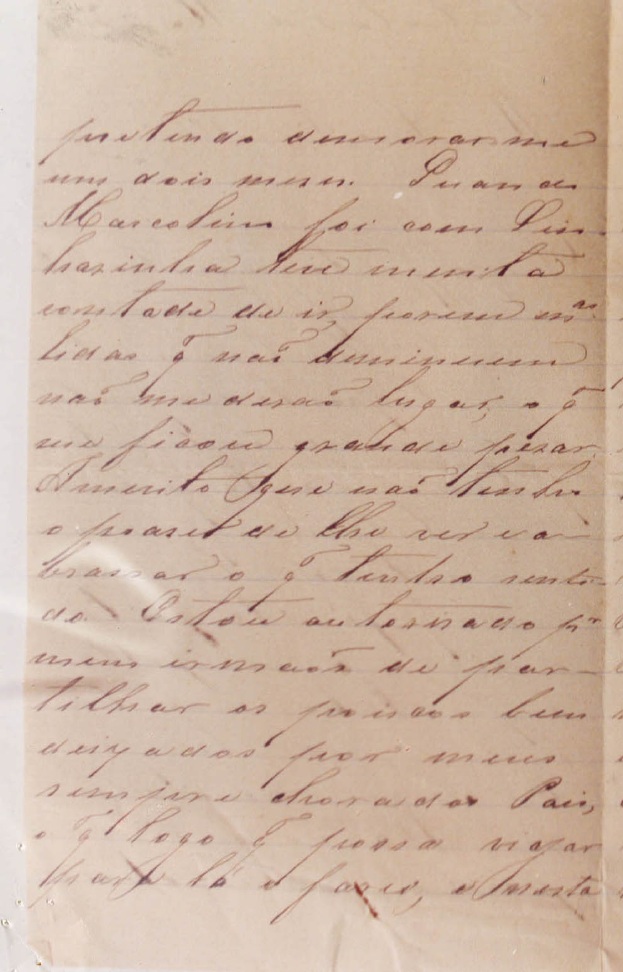 pretendo demorar me
uns dois meses. Quando
Marcolino foi com Sin-
hasinha tive muita
vontade de ir, porem m.as
lidas q̃ não diminuem
não me derão lugar, o q̃
me ficou grande pezar.
A muito que não tenho
o praser de lhe ver e a-
brassar o q̃ tenho senti-
do. Estou autorisado p.r
meus irmãos de par-
tilhar os poucos bens
deixados por meus
sempre chorados Pais,
o q̃ logo q̃ possa viajar
para lá o farei, e nesta